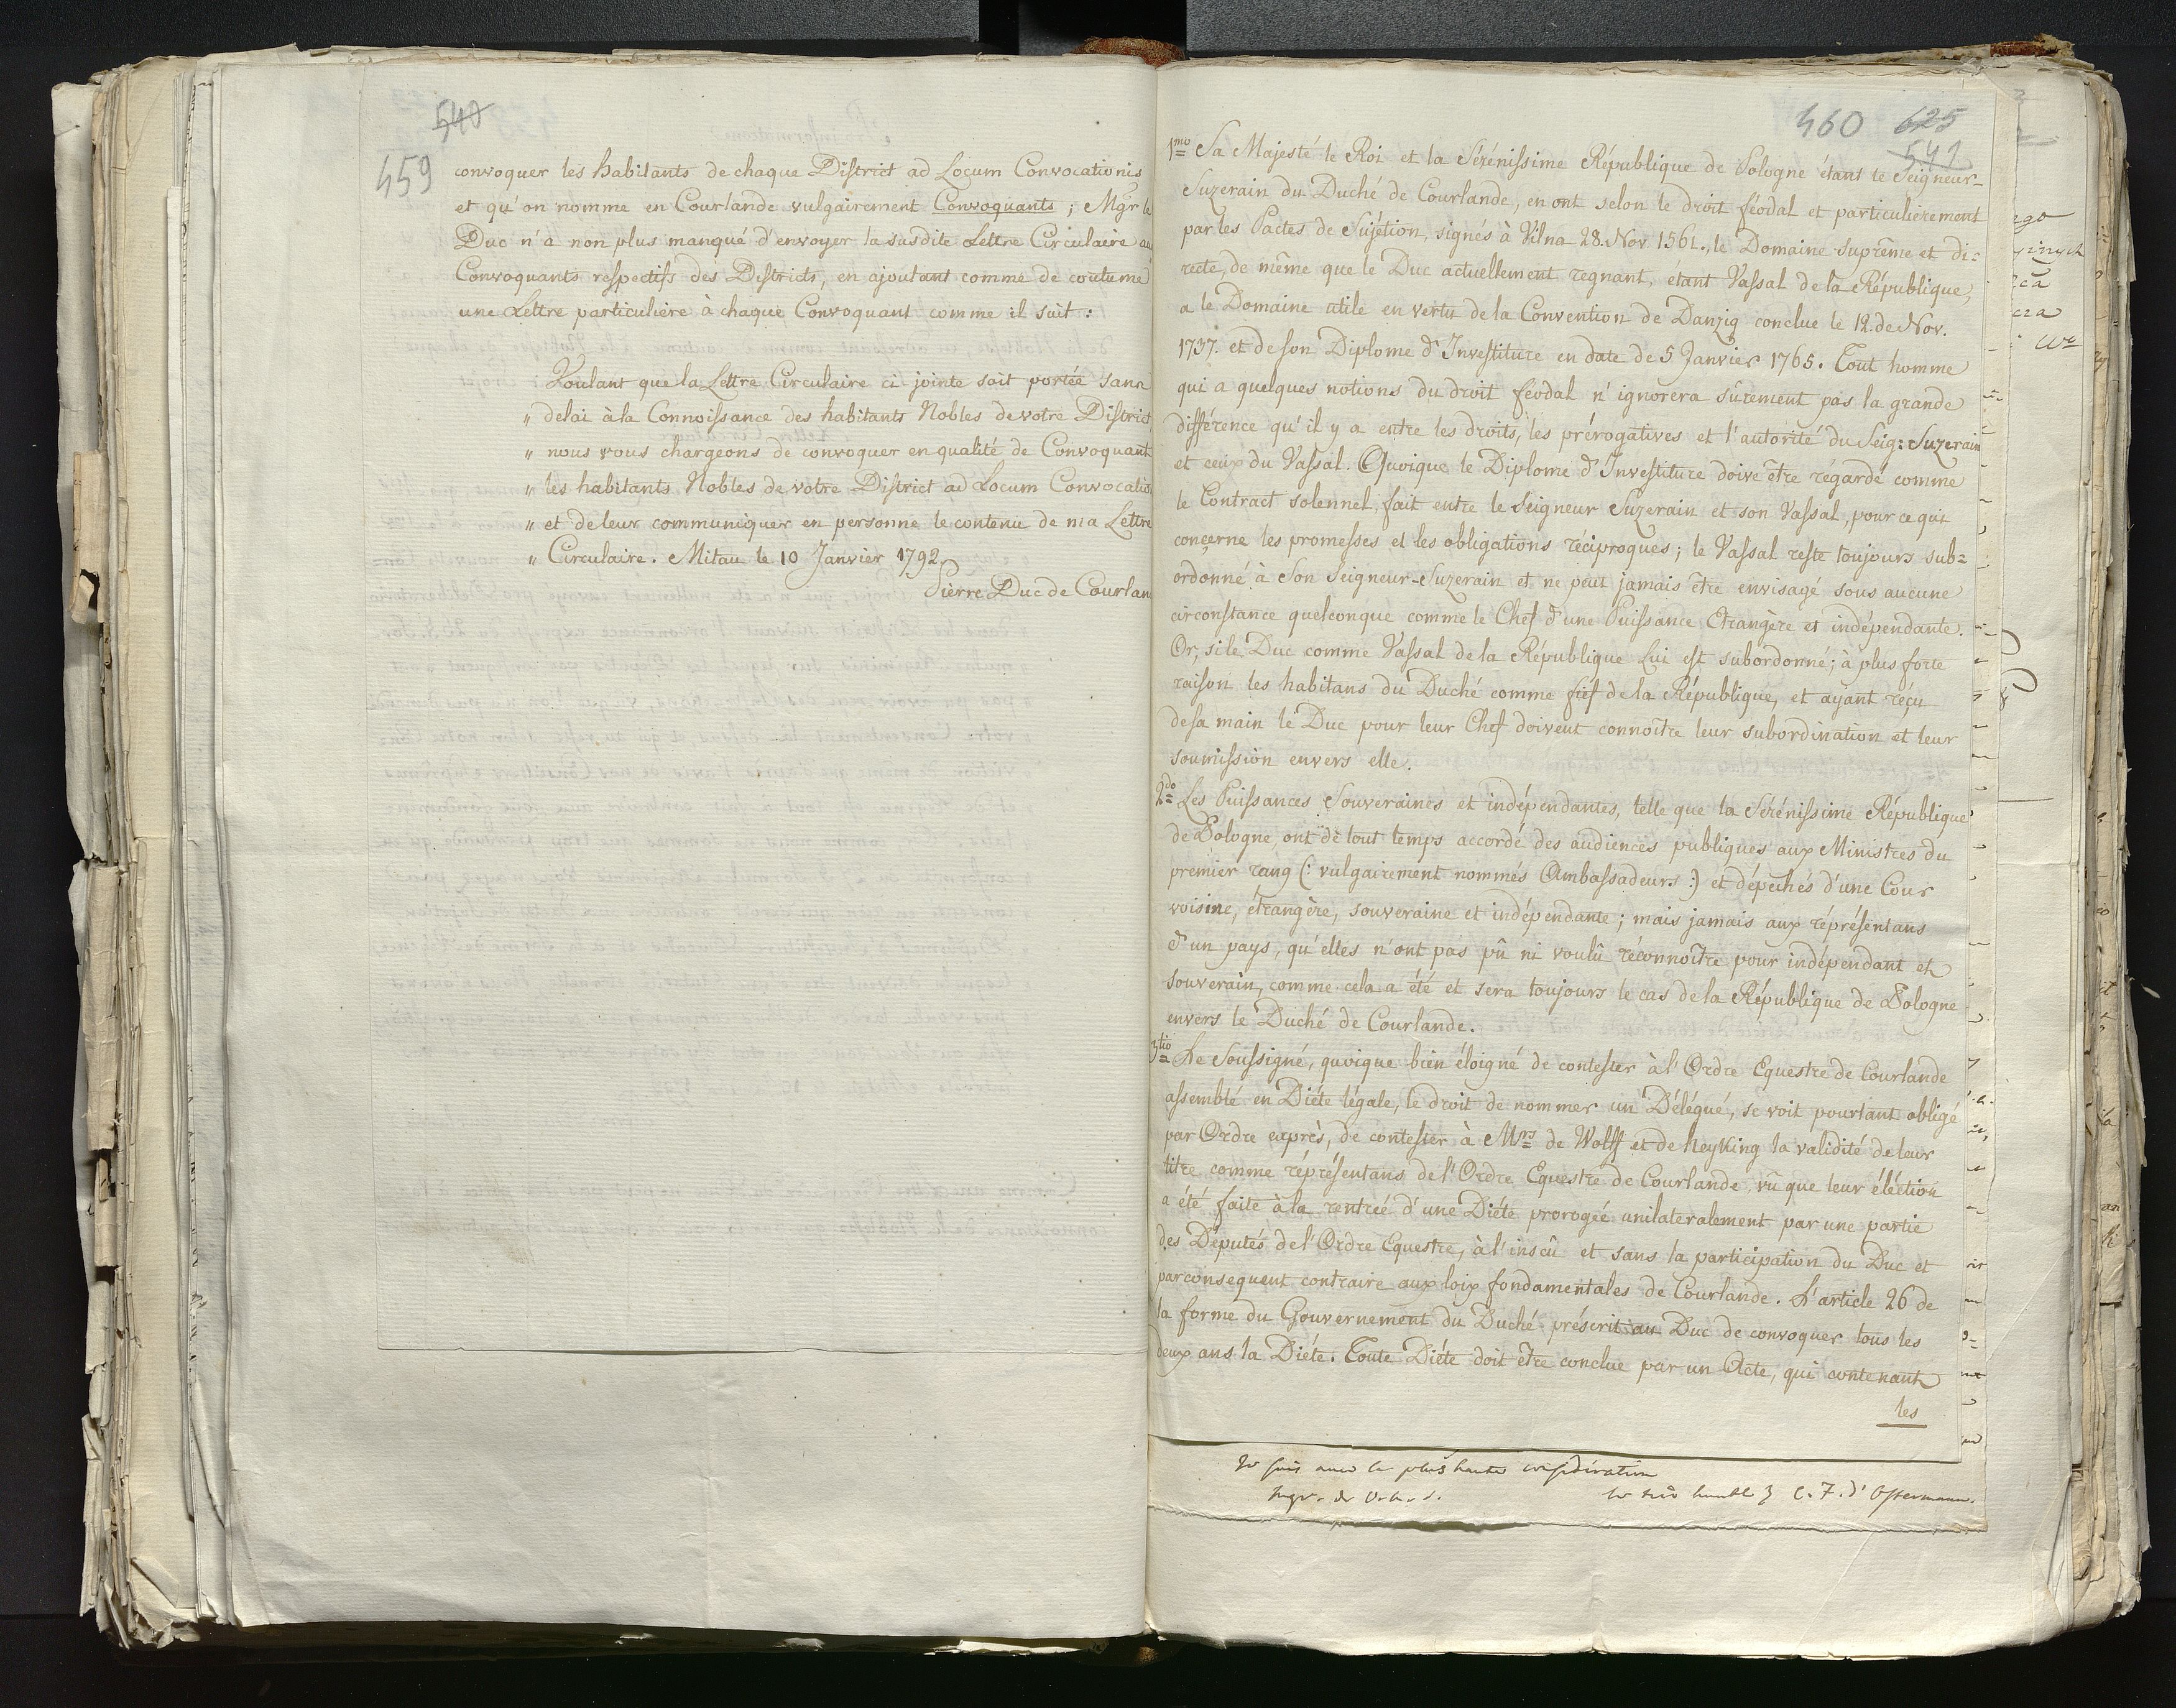 540
459
convoquer les habitants de chaque District ad Locum Convocationis
et qu'on nomme en Courlande vulgairement Convoquants ; Mgr le
Duc n'a non plus manqué d'envoyer la susdite Lettre Circulaire au
Convoquants respectifs des Districts, en ajoutant comme de coutume
une Lettre particuliere à chaque Convoquant comme il suit :
Voulant que la Lettre Circulaire ci jointe soit portée sans
" delai à la Connoissance des habitants Nobles de votre District,
" nous vous chargeons de convoquer en qualité de Convoquant
" les habitants Nobles de votre District ad Locum Convocatio
" et de leur communiquer en personne le contenu de ma Lettre
" Circulaire. Mitau le 10 Janvier 1792.
Pierre Duc de Courlan
460 625
541
1mo Sa Majesté le Roi et la Sérénissime République de Pologne étant le Seigneur-
Suzerain du Duché de Courlande, en ont selon le droit féodal et particulièrement
par les Pactes de Sujétion, signés à Vilna 28. Nov. 1561., le Domaine Suprême et di=
recte, de même que le Duc actuellement regnant, étant Vassal de la République,
a le Domaine utile en vertu de la Convention de Danzig conclue le 12. de Nov.
1737. et de son Diplome d'Investiture en date de 5 Janvier 1765. Tout homme
qui a quelques notions du droit féodal n'ignorera sûrement pas la grande
différence qu'il y a entre les droits, les prérogatives et l'autorité du Seig: Suzerain
et ceux du Vassal. Quoique le Diplome d'Investiture doive être régardé comme
le Contract solennel, fait entre le Seigneur Suzerain et son Vassal, pour ce qui
conçerne les promesses et les obligations réciproques ; le Vassal reste toujours sub=
ordonné à Son Seigneur-Suzerain et ne peut jamais être envisagé sous aucune
circonstance quelconque comme le Chef d'une Puissance Etrangère et indépendante.
Or, si le Duc comme Vassal de la République Lui est subordonné ; à plus forte
raison les habitans du Duché comme fief de la République, et ayant réçu
de sa main le Duc pour leur Chef doivent connoître leur subordination et leur
soumission envers elle.
2do Les Puissances Souveraines et indépendantes, telle que la Sérénissime République
de Pologne, ont de tout temps accordé des audiences publiques aux Ministres du
premier rang (: vulgairement nommés Ambassadeurs :) et dépechés d'une Cour
voisine, étrangère, souveraine et indépendante ; mais jamais aux réprésentans
d'un pays, qu'elles n'ont pas pû ni voulû réconnoître pour indépendant et
souverain, comme cela a été et sera toujours le cas de la République de Pologne
envers le Duché de Courlande.
3tio Le Soussigné, quoique bien éloigné de contester à l'Ordre Equestre de Courlande
assemblé en Diéte légale, le droit de nommer un Délégué, se voit pourtant obligé
par Ordre exprès, de contester à Mrs de Wolff et de Heyking la validité de leur
titre comme réprésentans de l'Ordre Equestre de Courlande vû que leur éléction
a été faite à la rentrée d'une Diéte prorogée unilateralement par une partie
des Députés de l'Ordre Equestre, à l'insçû et sans la participation du Duc et
parconsequent contraire aux loix fondamentales de Courlande. L'article 26 de
la forme du Gouvernement du Duché préscrit au Duc de convoquer tous les
deux ans la Diéte. Toute Diéte doit être conclue par un Acte, qui contenant
les
Je suis avec la plus haute considération
le très humble C. F. d'Ostermann.